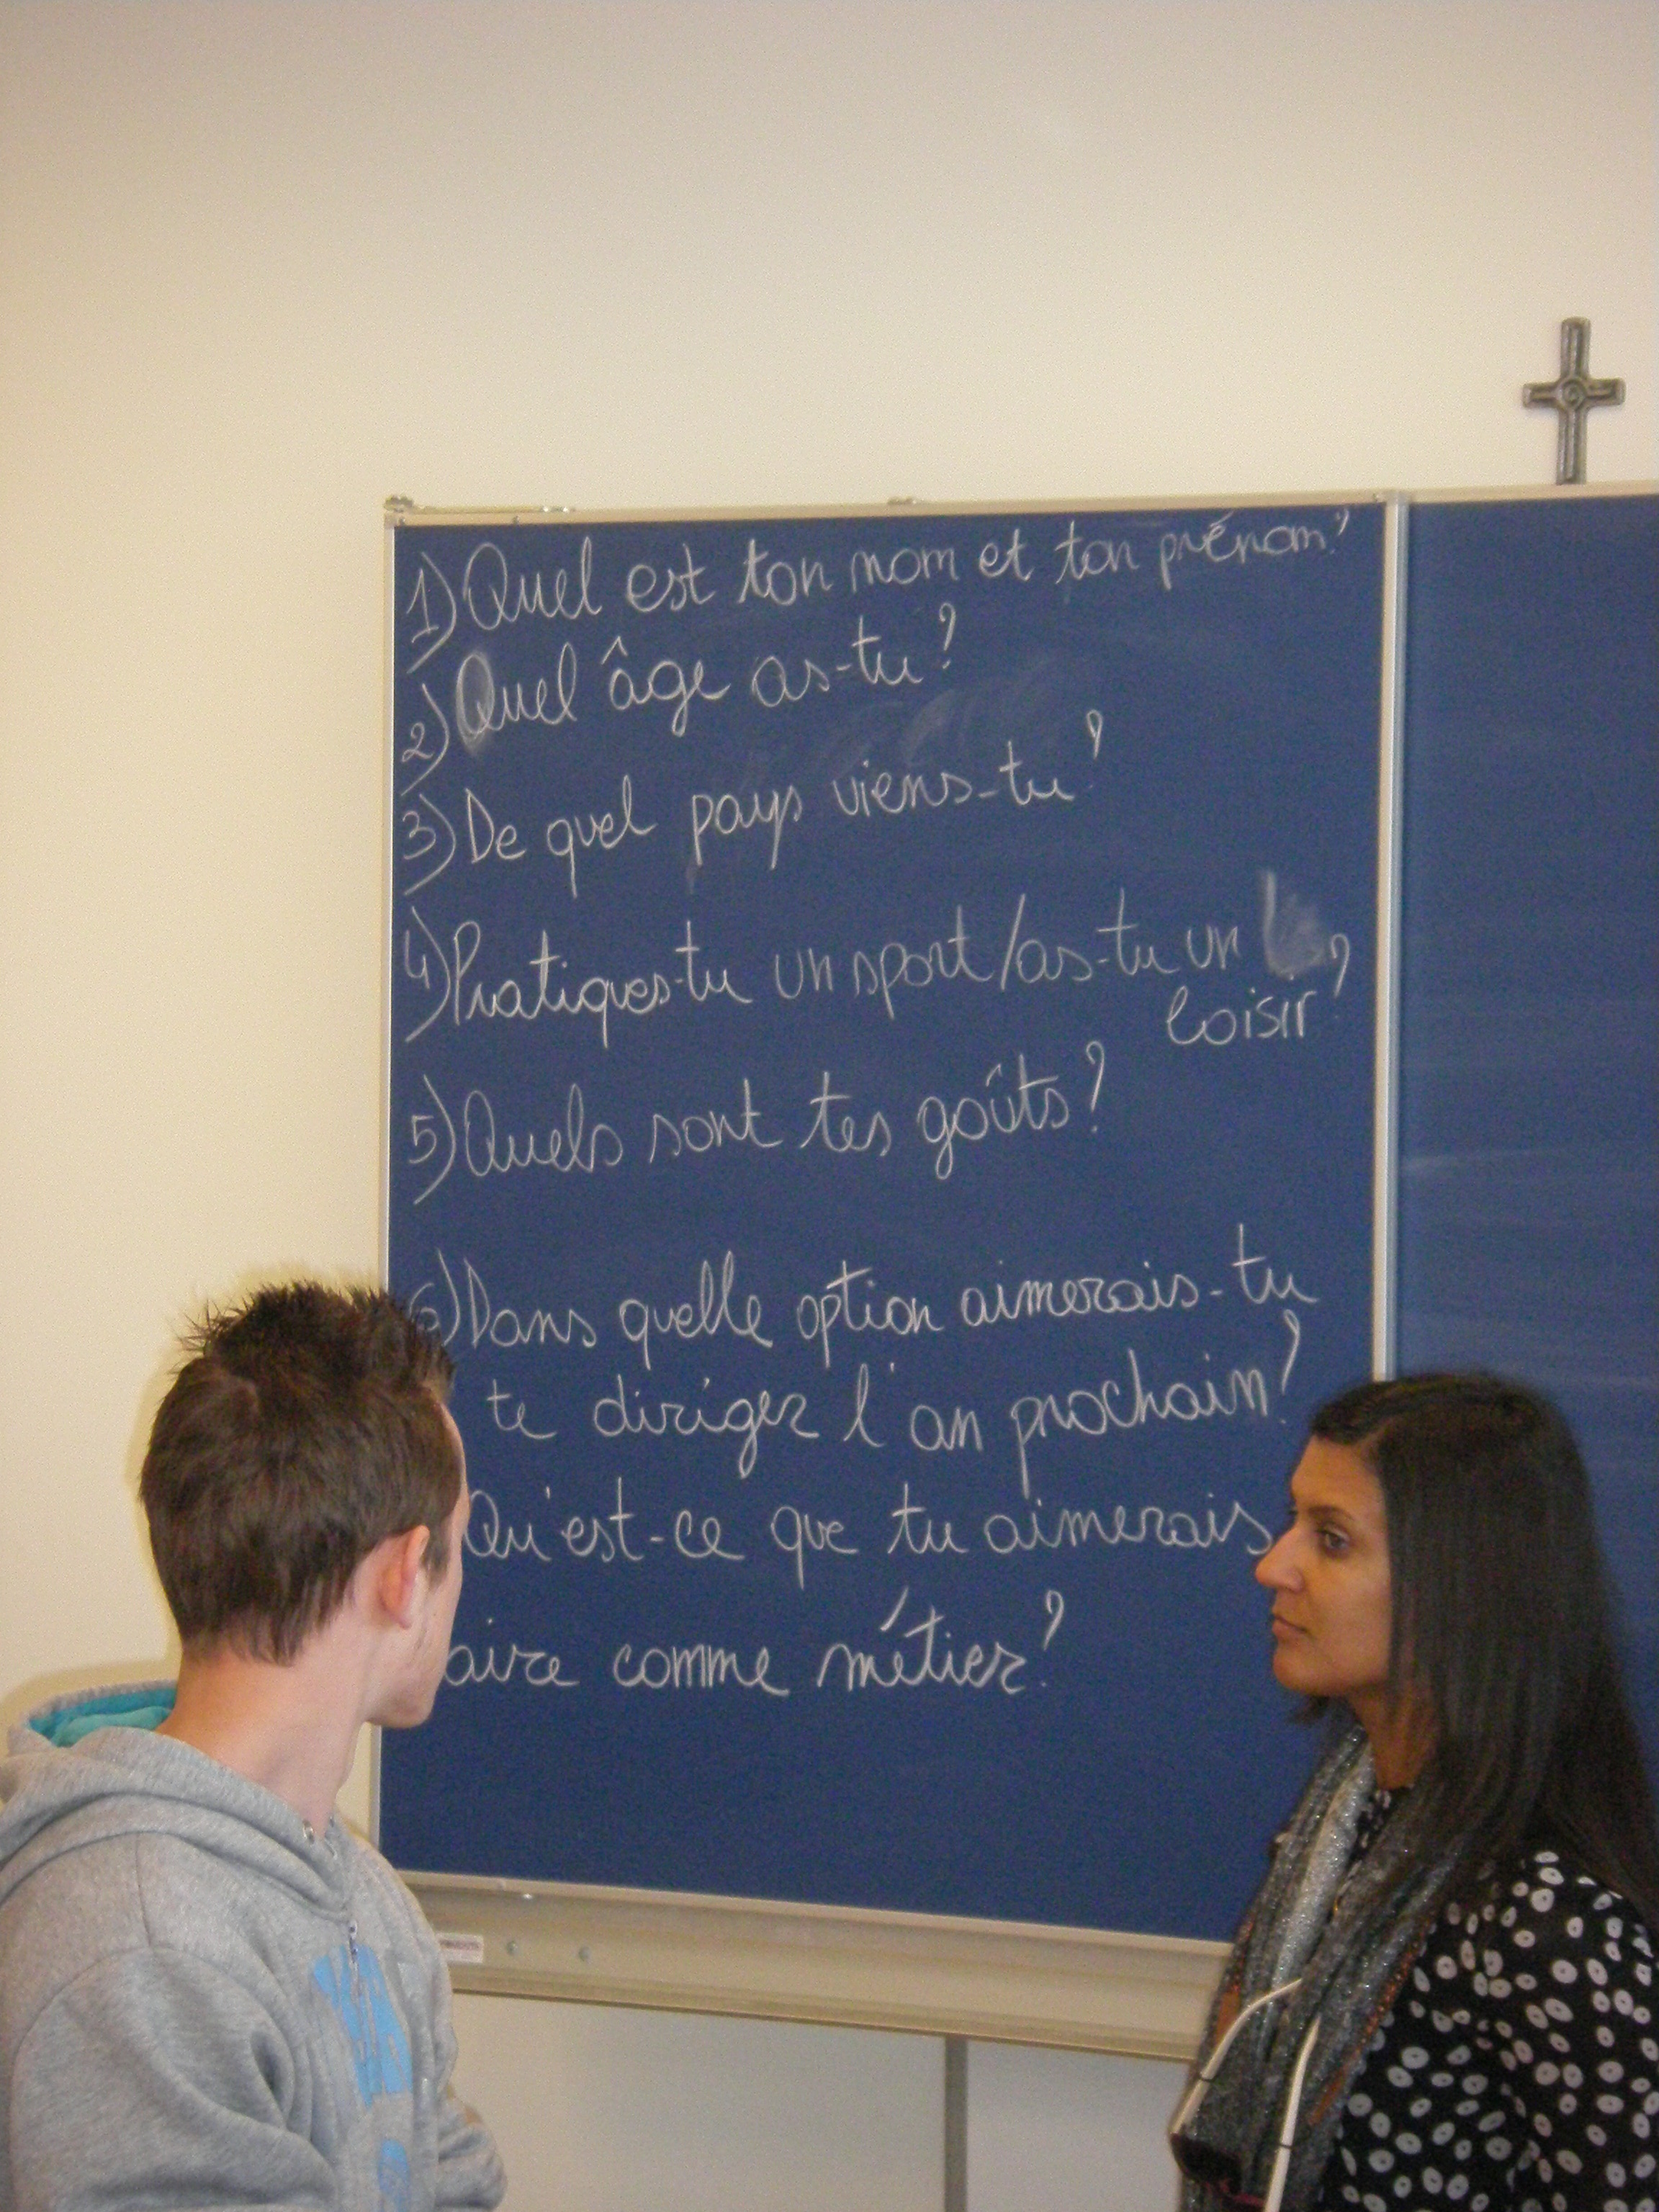 1) Quel est ton nom et ton prénom?
2) Quel âge as-tu?
3) De quel pays viens-tu?
4) Pratiques-tu un sport/as-tu un
loisir?
5) Quels sont tes goûts?
6) Dans quelle option aimerais-tu
te diriger l'an prochain?
Qu'est-ce que tu aimerais
aire comme métier?